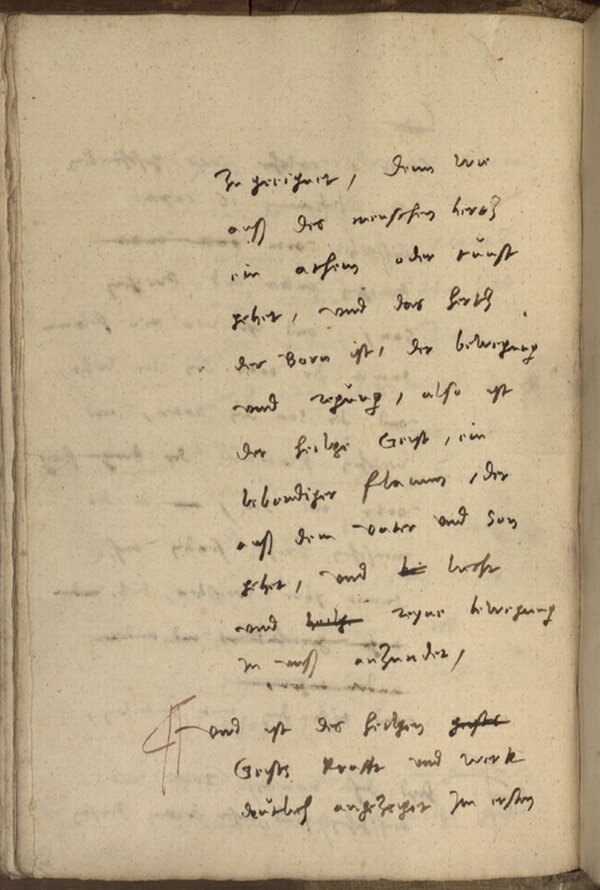 zu geeignet, Denn wie
auß des menschen hertz
ein athem oder dunst
gehet, und das hertz
der Born ist, der bewegung
und regung, also ist
der heilge Geist, ein
lebendiger flamm, der
auß dem vater und Son
gehet, und licht
und reyne bewegung
in uns anzundet,
und ist des heilgen geists
Geists krafft und werk
deutlich angezeiget Im ersten